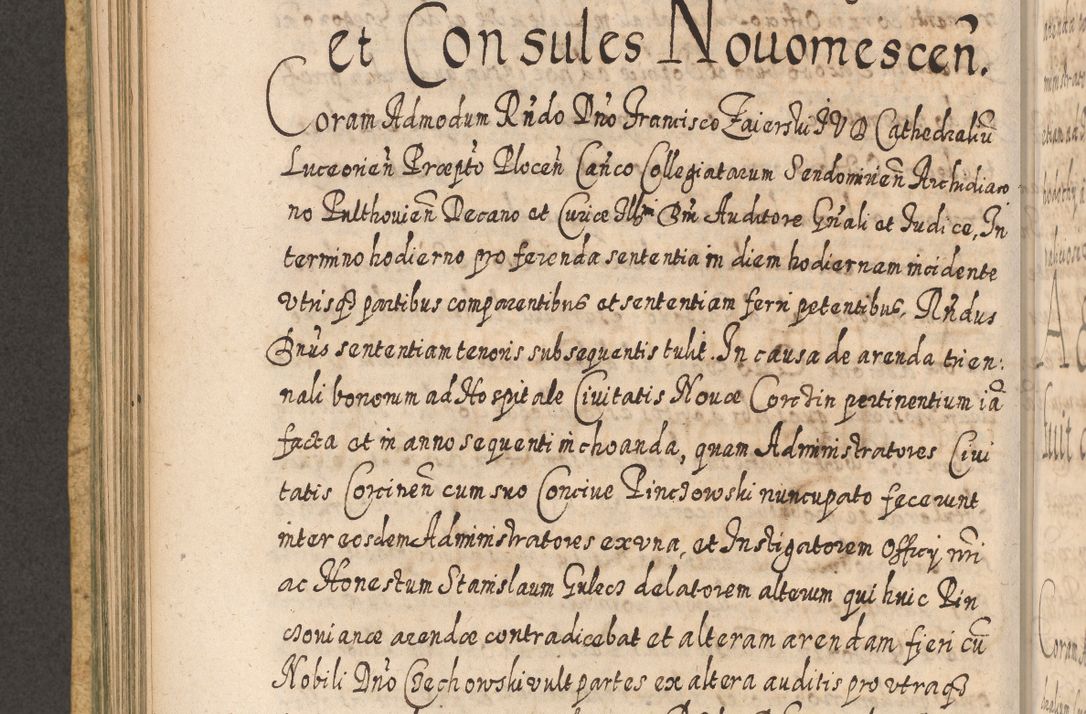 et Consules Nouomesceñ.
Coram Admodum Rñdo Dño Francisco Zaierski IVD Cathedraliũ
Luceorień Præpto Ploceñ Cañco Collegiatarum Sendomirieñ Archidiaco
no Pulthovieñ Decano et Curiæ Illmi Dm Auditore Gñali et Iudice, In
termino hodierno pro ferenda sententia in diem hodiernam incidente
vtrisq partibus comparentibus et sententiam ferri petentibus, Rñdus
Dnús sententiam tenoris subsequentis tulit. In causa de arenda trien:
nali bonorum ad Hospitale Ciuitatis Nouæ Corczin pertinentium iã
facta et in anno sequenti inchoanda, quam Administratores Ciui
tatis Corcineñ cum suo Conciue Pinczowski nuncupato fecerunt
inter eosdem Administratores ex vna, et Instigatorem Officij nri
ac Honestum Stanislaum Gulecz delatorem alterum qui huic Pin
czouianæ arendæ contradicebat et alteram arendam fieri cũ
Nobili Dño Czechowski vult partes ex altera auditis pro vtraq